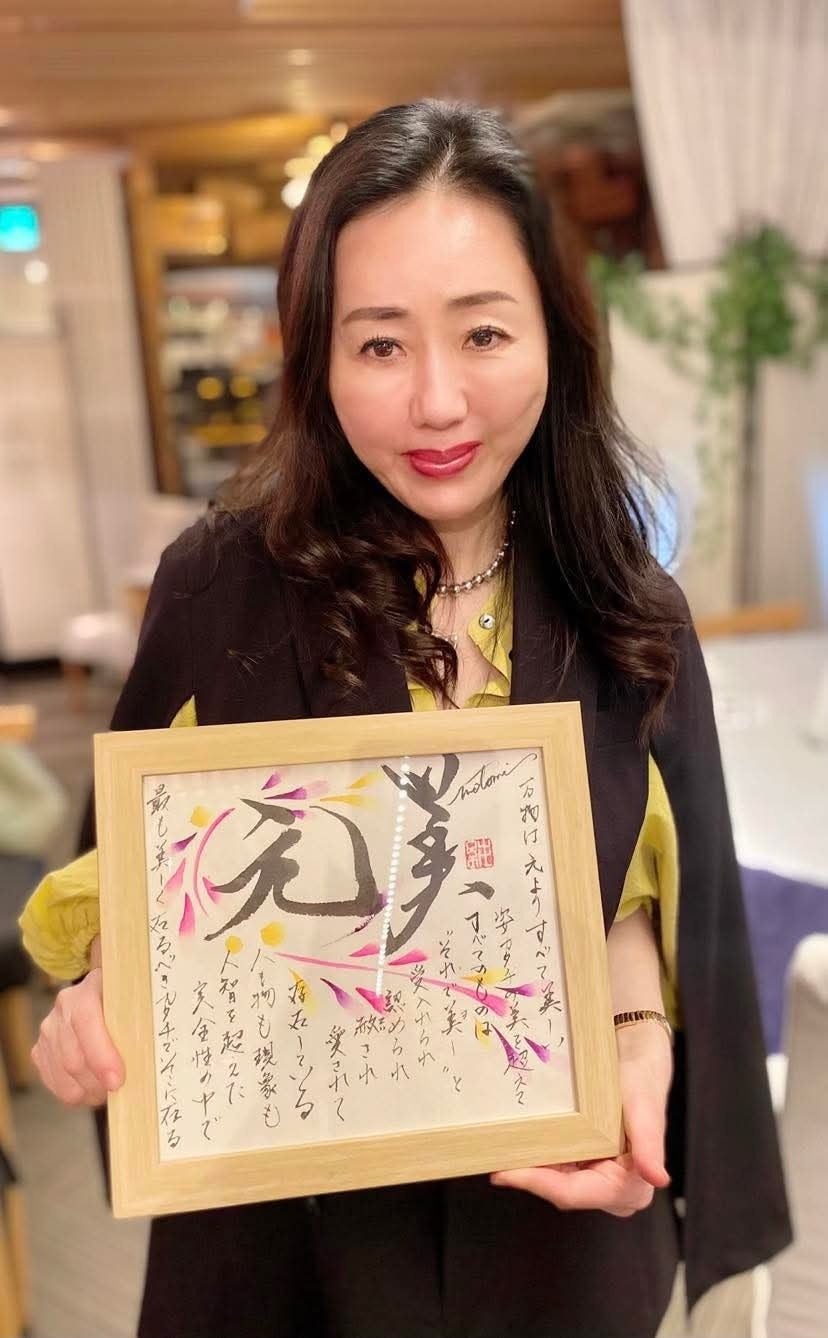 美元
notomi
万物は元よりすべて美しい
姿カタチの美を超えて
すべてのものは
"それで美し"と
受入れられ
認められ
赦され
愛されて
存在している
人も物も現象も
人智を超えた
完全性の中で
最も美しく在るべきカタチでそこに在る